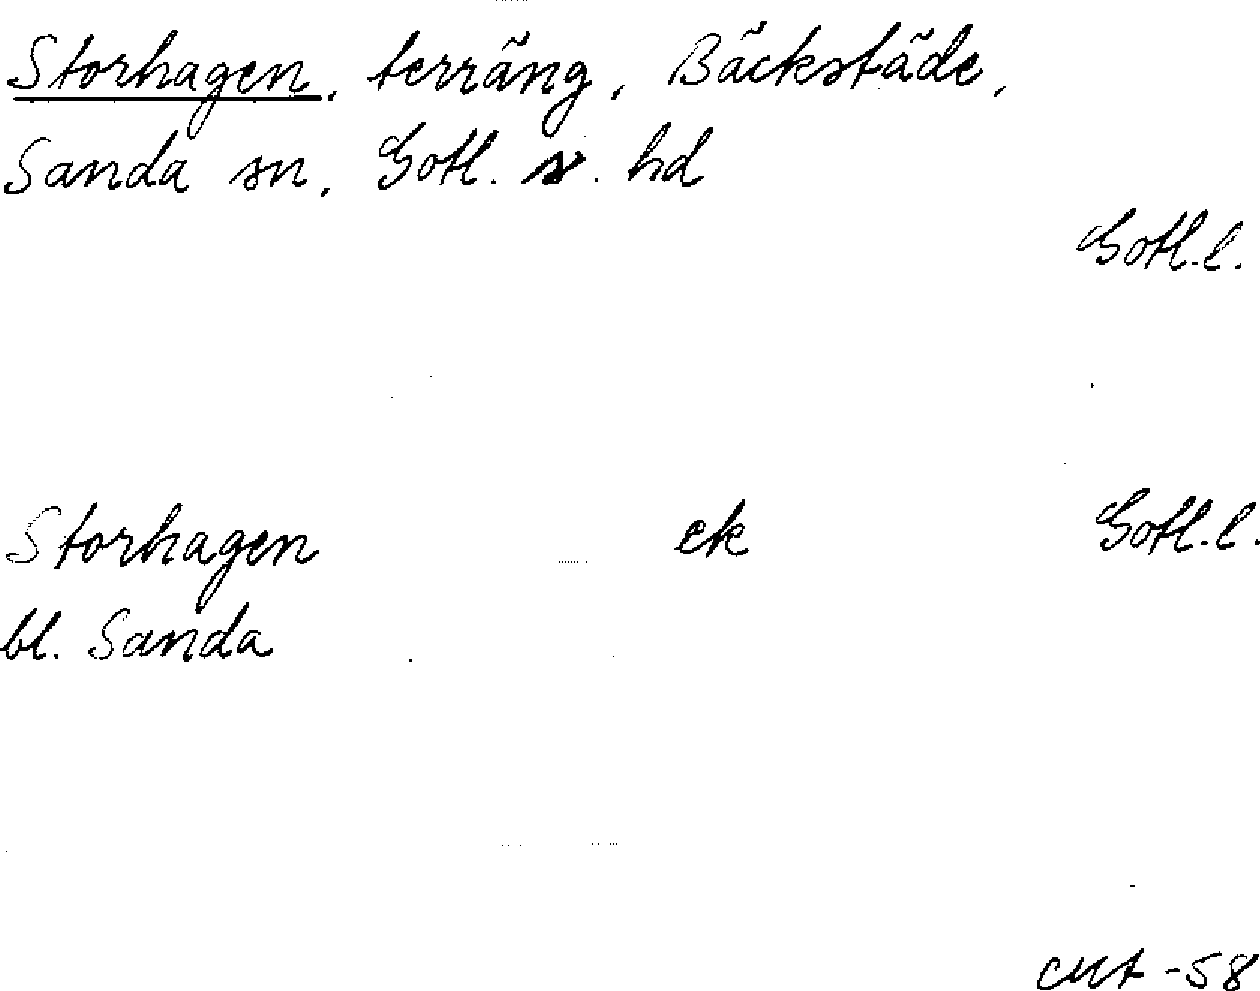 Storhagen, terräng, Bäckstäde,
Sanda sn, Gotl. s. hd
Gotl.l.
Storhagen ek Gotl.l.
bl. Sanda
-58